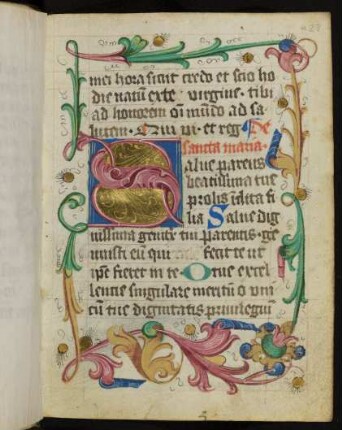 mei hora sicut credo et scio ho
die natū ex te virgine · tibi
ad honorem oī mūdo ad sa
lutem · Qui vi · et reg De
sancta maria ·
Salue parens
beatissima tue
prolis īclita fi
lia Salue dig
nissima genitrix tui parentis · ge
nuisti eū qui fecit te ut
ip̄e fieret in te O tue excel
lencie singulare meritū o vni
cū tue dignitatis privilegiū